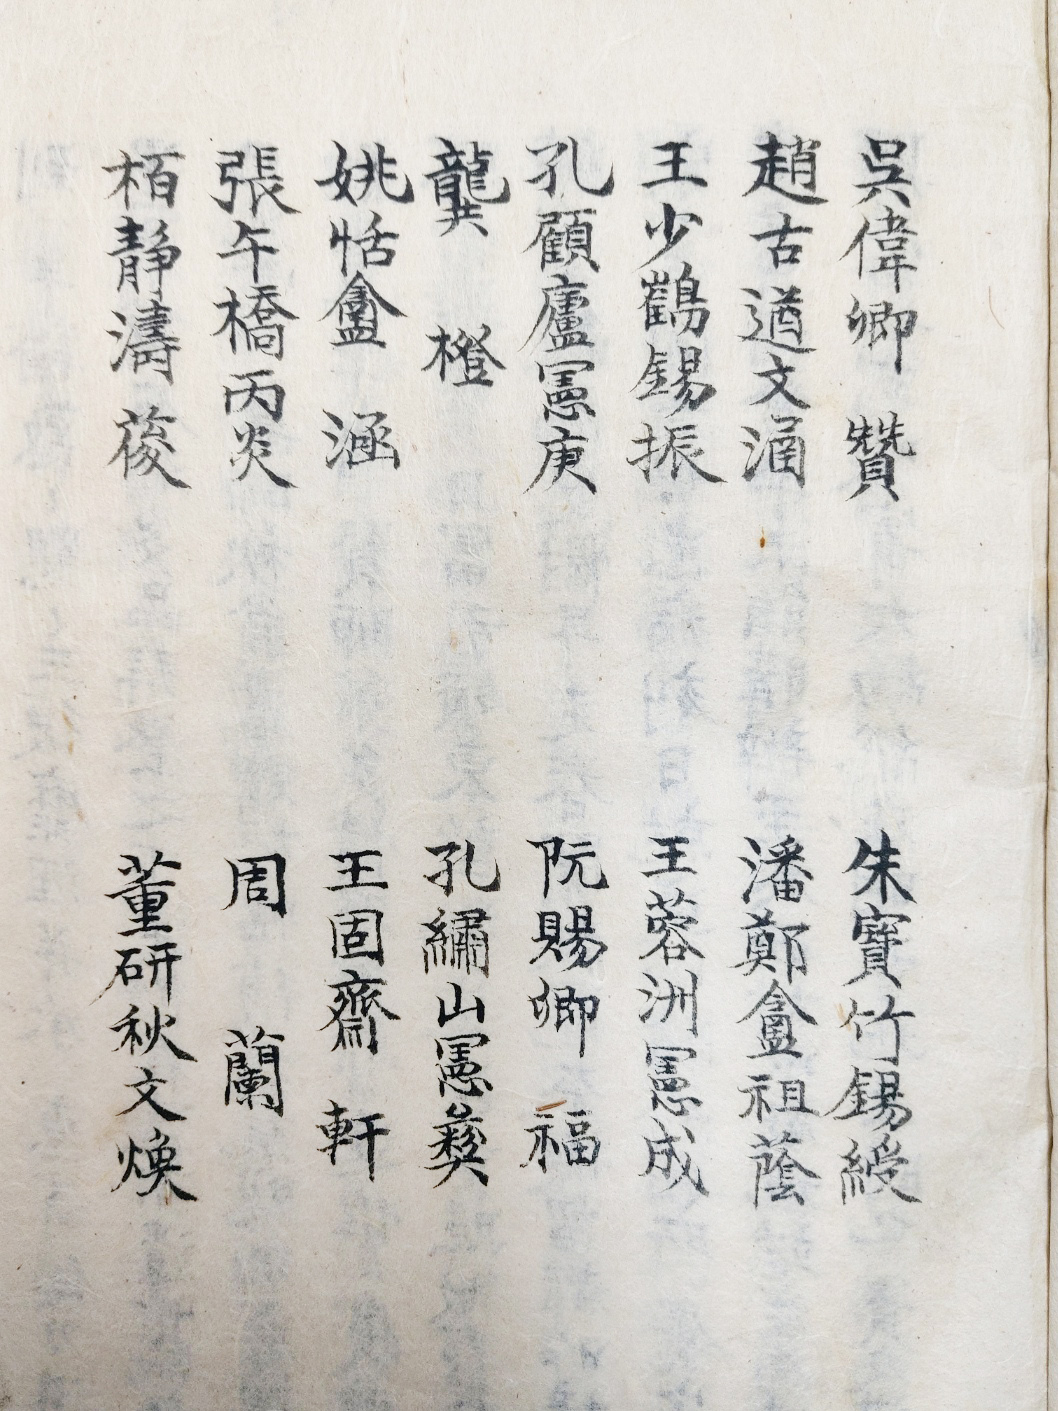 吳偉卿 贊 朱寶竹錫綬
趙古遒文涵 潘鄭盦祖蔭
王少鶴錫振 王蓉洲憲成
孔顧廬憲庚 阮賜卿 福
龔 橙 孔繡山憲彝
姚恬盦 涵 王固齋 軒
張午橋丙炎 周 蘭
栢靜濤 葰 董研秋文煥